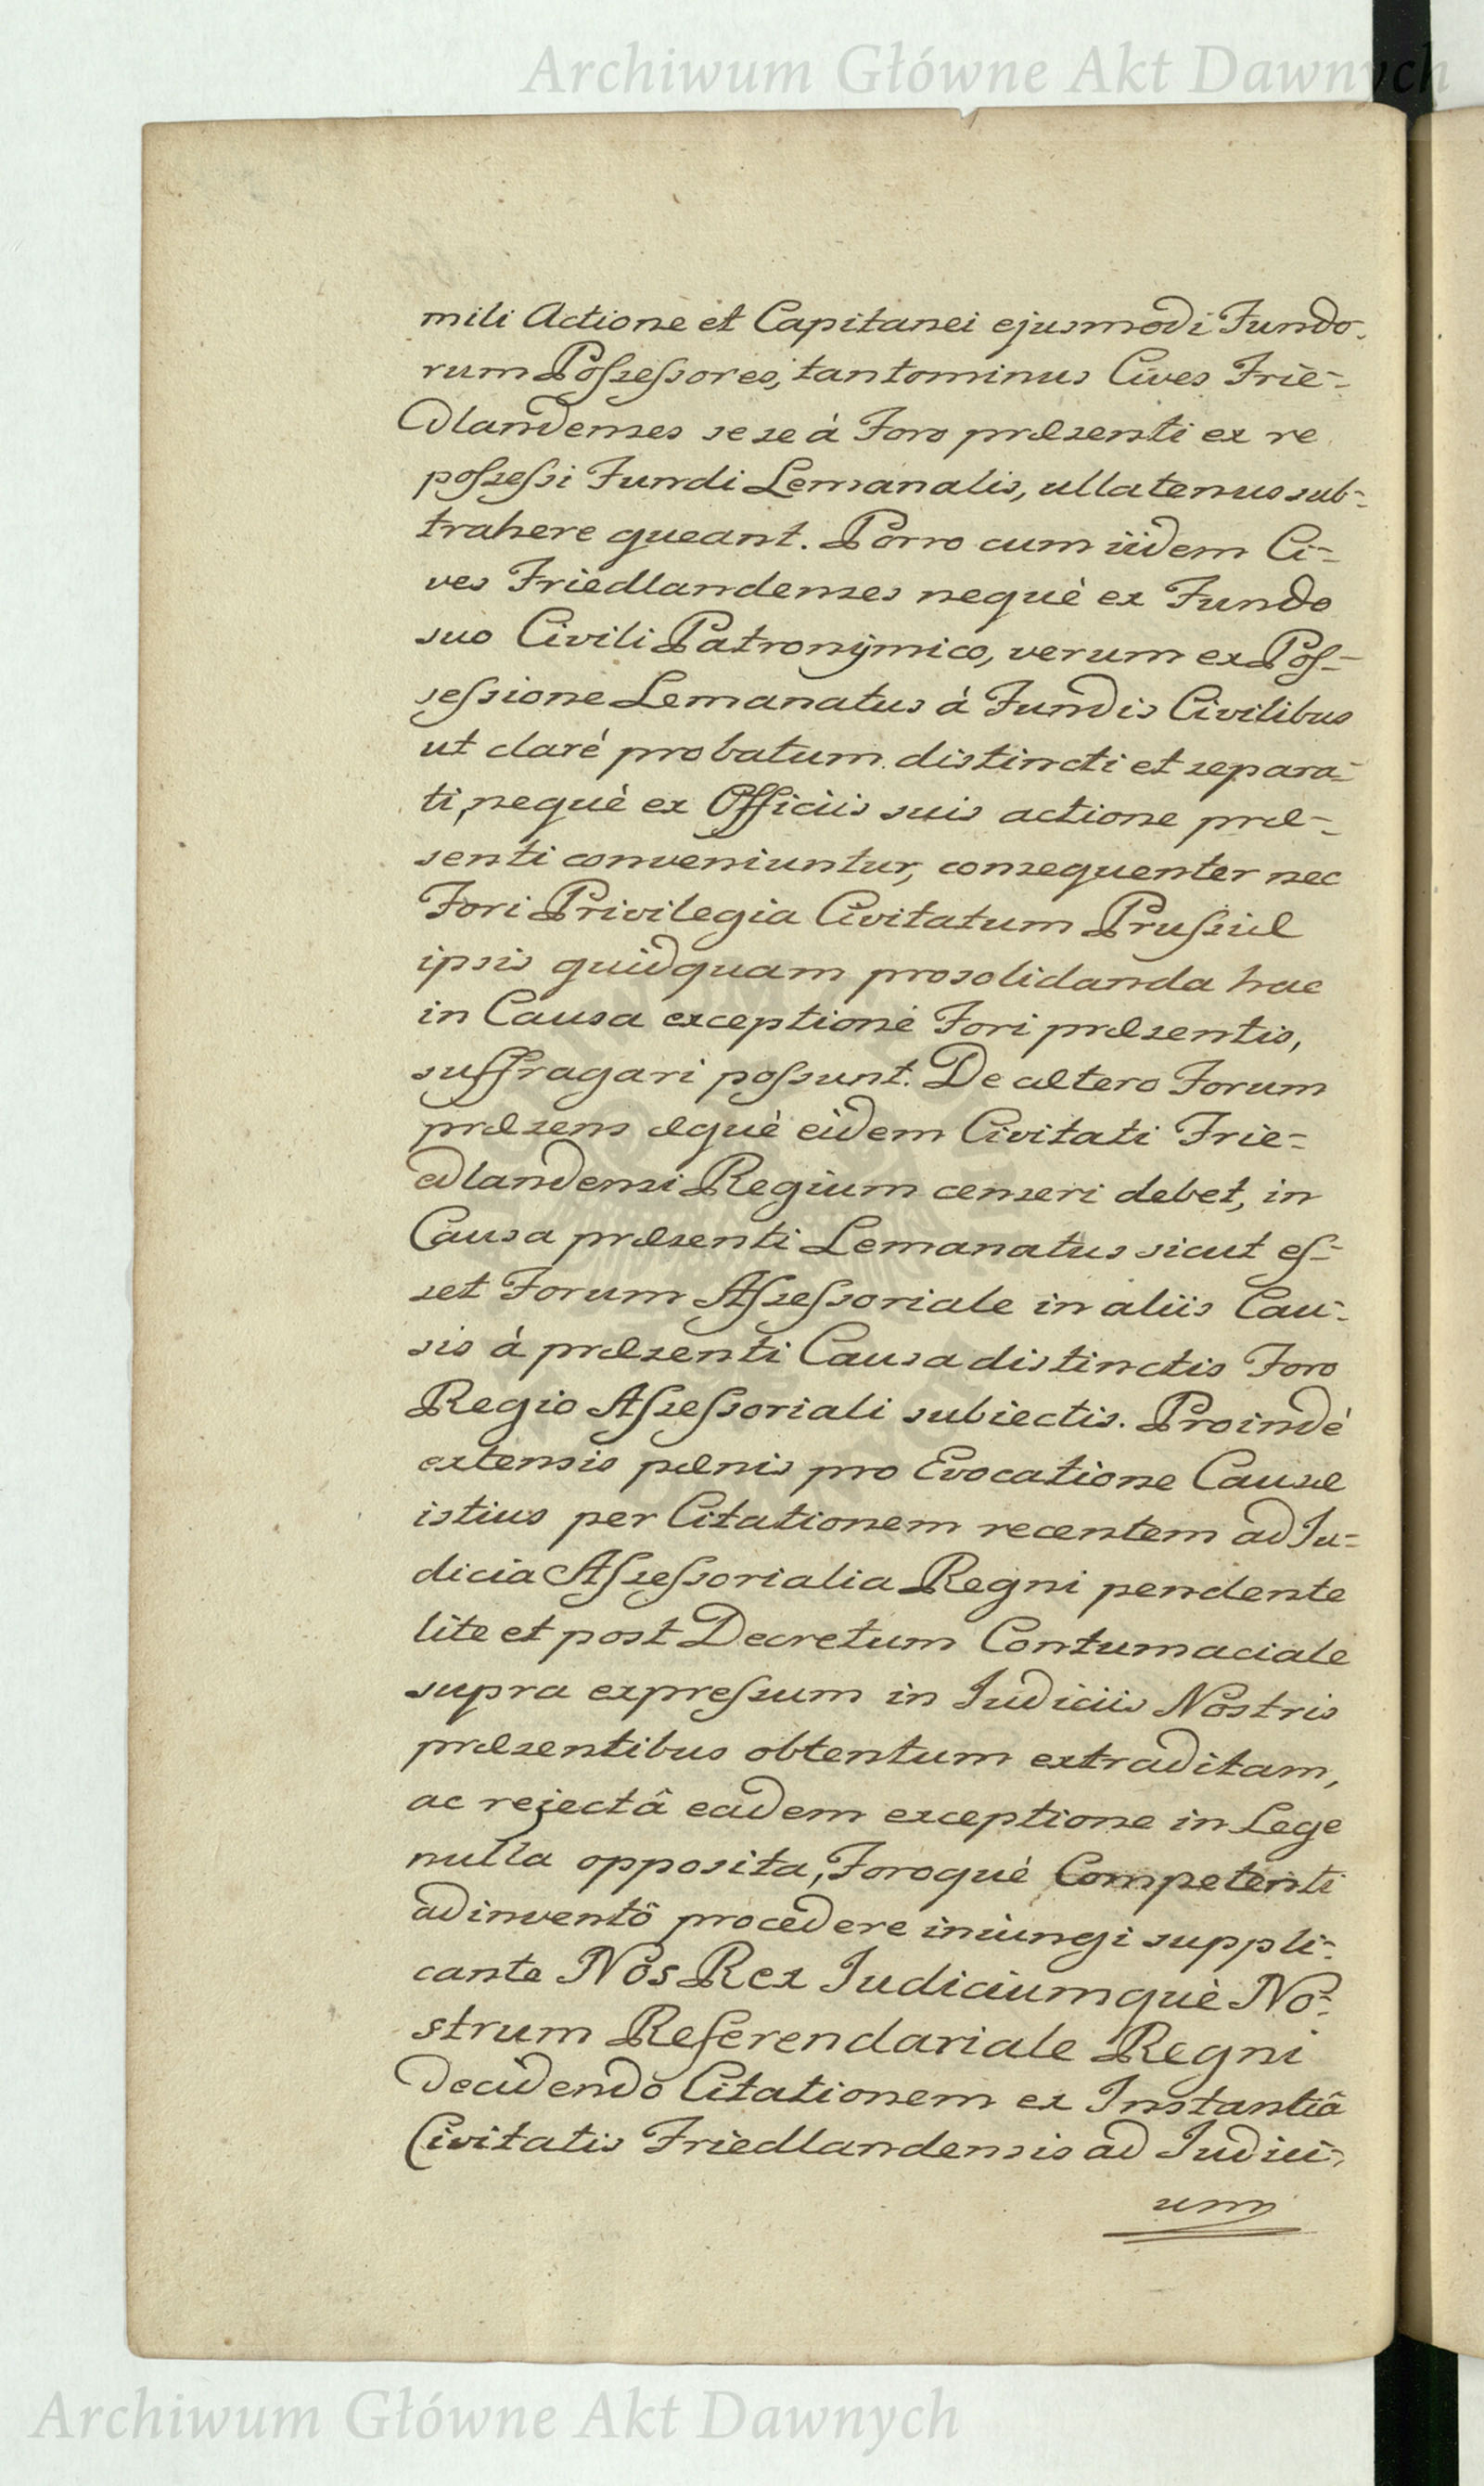 Archiwum Główne Akt Dawnych
mili Actione et Capitanei ejusmodi Fundo-
rum Possessores, tantominus Cives Frie-
dlandenses sese à Foro præsenti ex re
possessi Fundi Lemanalis, ullatenus sub-
trahere queant. Porro cum iidem Ci-
ves Friedlandenses nequè ex Fundo
suo Civili Patronÿmico, verum ex Pos-
sessione Lemanatus à Fundis Civilibus
ut claré probatum distincti et separa-
ti, nequè ex Officiis suis actione præ-
senti conveniuntur, consequenter nec
Fori Privilegia Civitatum Prussiæ
ipsis quidquam prosolidanda hac
in Causa exceptione Fori præsentis,
suffragari possunt. De cætero Forum
præsens æquè eidem Civitati Frie-
dlandensi Regium censeri debet, in
Causa præsenti Lemanatus sicut es-
set Forum Assessoriale in aliis Cau-
sis à præsenti Causa distinctis Foro
Regio Assessoriali subiectis. Proindè
extensis pænis pro Evocatione Causæ
istius per Citationem recentem ad Iu-
dicia Assessorialia Regni pendente
lite et post Decretum Contumaciale
supra expressum in Iudiciis Nostris
præsentibus obtentum extraditam,
ac rejectâ eadem exceptione in Lege
nulla opposita, Foroquè Competenti
adinventô procedere iniungi suppli-
cante Nos Rex Iudiciumquè No-
strum Referendariale Regni
decidendo Citationem ex Instantiâ
Civitatis Friedlandensis ad Iudici-
um
Archiwum Główne Akt Dawnych